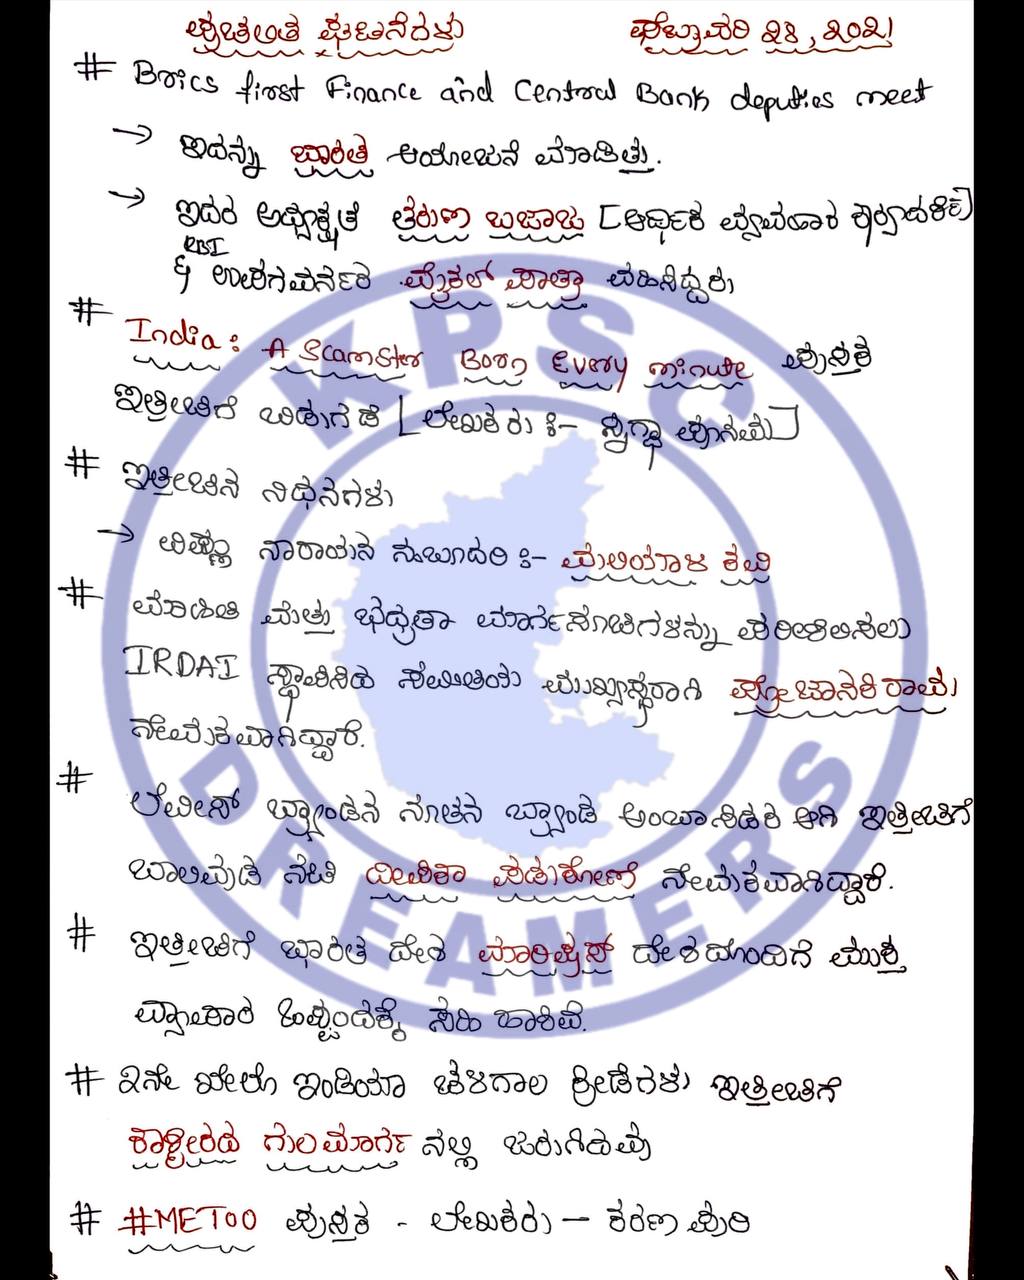 ಪ್ರಚಲಿತ ಘಟನೆಗಳು ಫೆಬ್ರುವರಿ ೨೮, ೨೦೨1
# Brics first Finance and Central Bank deputies meet
→ ಇದನ್ನು ಭಾರತ ಆಯೋಜನೆ ಮಾಡಿತ್ತು.
→ ಇದರ ಅಧ್ಯಕ್ಷತೆ ತರುಣ ಬಜಾಜ [ಆರ್ಥಿಕ ವ್ಯವಹಾರ ಕಾರ್ಯದರ್ಶಿ]
& RBI ಉಪಗವರ್ನರ ಮೈಕಲ್ ಪಾತ್ರಾ ವಹಿಸಿದ್ದರು
# India: A Scamster Born Every minute ಪುಸ್ತಕ
ಇತ್ತೀಚಿಗೆ ಬಿಡುಗಡೆ [ಲೇಖಕರು :- ಸ್ನಿಗ್ಧಾ ಪೂನಮ]
# ಇತ್ತೀಚಿನ ನಿಧನಗಳು
→ ವಿಷ್ಣು ನಾರಾಯಣ ನಂಬೂದರಿ :- ಮಲಿಯಾಳ ಕವಿ
# ಮಾಹಿತಿ ಮತ್ತು ಭದ್ರತಾ ಮಾರ್ಗಸೂಚಿಗಳನ್ನು ಪರಿಶೀಲಿಸಲು
IRDAI ಸ್ಥಾಪಿಸಿದ ಸಮಿತಿಯ ಮುಖ್ಯಸ್ಥರಾಗಿ
ನೇಮಕವಾಗಿದ್ದಾರೆ.
# ಲೆವೀಸ್ ಬ್ಯ್ರಾಂಡನ ನೂತನ ಬ್ಯ್ರಾಂಡ ಅಂಬಾಸಿಡರ ಆಗಿ ಇತ್ತೀಚಿಗೆ
ಬಾಲಿವುಡ ನಟಿ ದೀಪಿಕಾ ಪಡುಕೋಣೆ ನೇಮಕವಾಗಿದ್ದಾರೆ.
# ಇತ್ತೀಚಿಗೆ ಭಾರತ ದೇಶ ಮಾರಿಷಸ್ ದೇಶದೊಂದಿಗೆ ಮುಕ್ತ
ವ್ಯಾಪಾರ ಒಪ್ಪಂದಕ್ಕೆ ಸಹಿ ಹಾಕಿದೆ.
# ೨ನೇ ಖೇಲೊ ಇಂಡಿಯಾ ಚಳಿಗಾಲ ಕ್ರೀಡೆಗಳು ಇತ್ತೀಚಿಗೆ
ಕಾಶ್ಮೀರದ ಗುಲಮಾರ್ಗ ನಲ್ಲಿ ಜರುಗಿದವು
# #METOO ಪುಸ್ತಕ - ಲೇಖಕರು - ಕರಣ ಪುರಿ
KPSC
DREAMERS